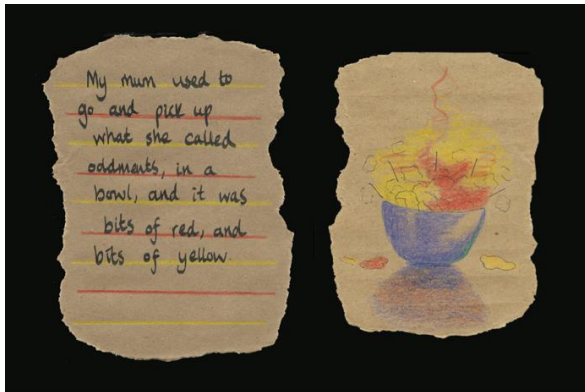 My mum used to
go and pick up
what she called
oddments, in a
bowl, and it was
bits of red, and
bits of yellow.